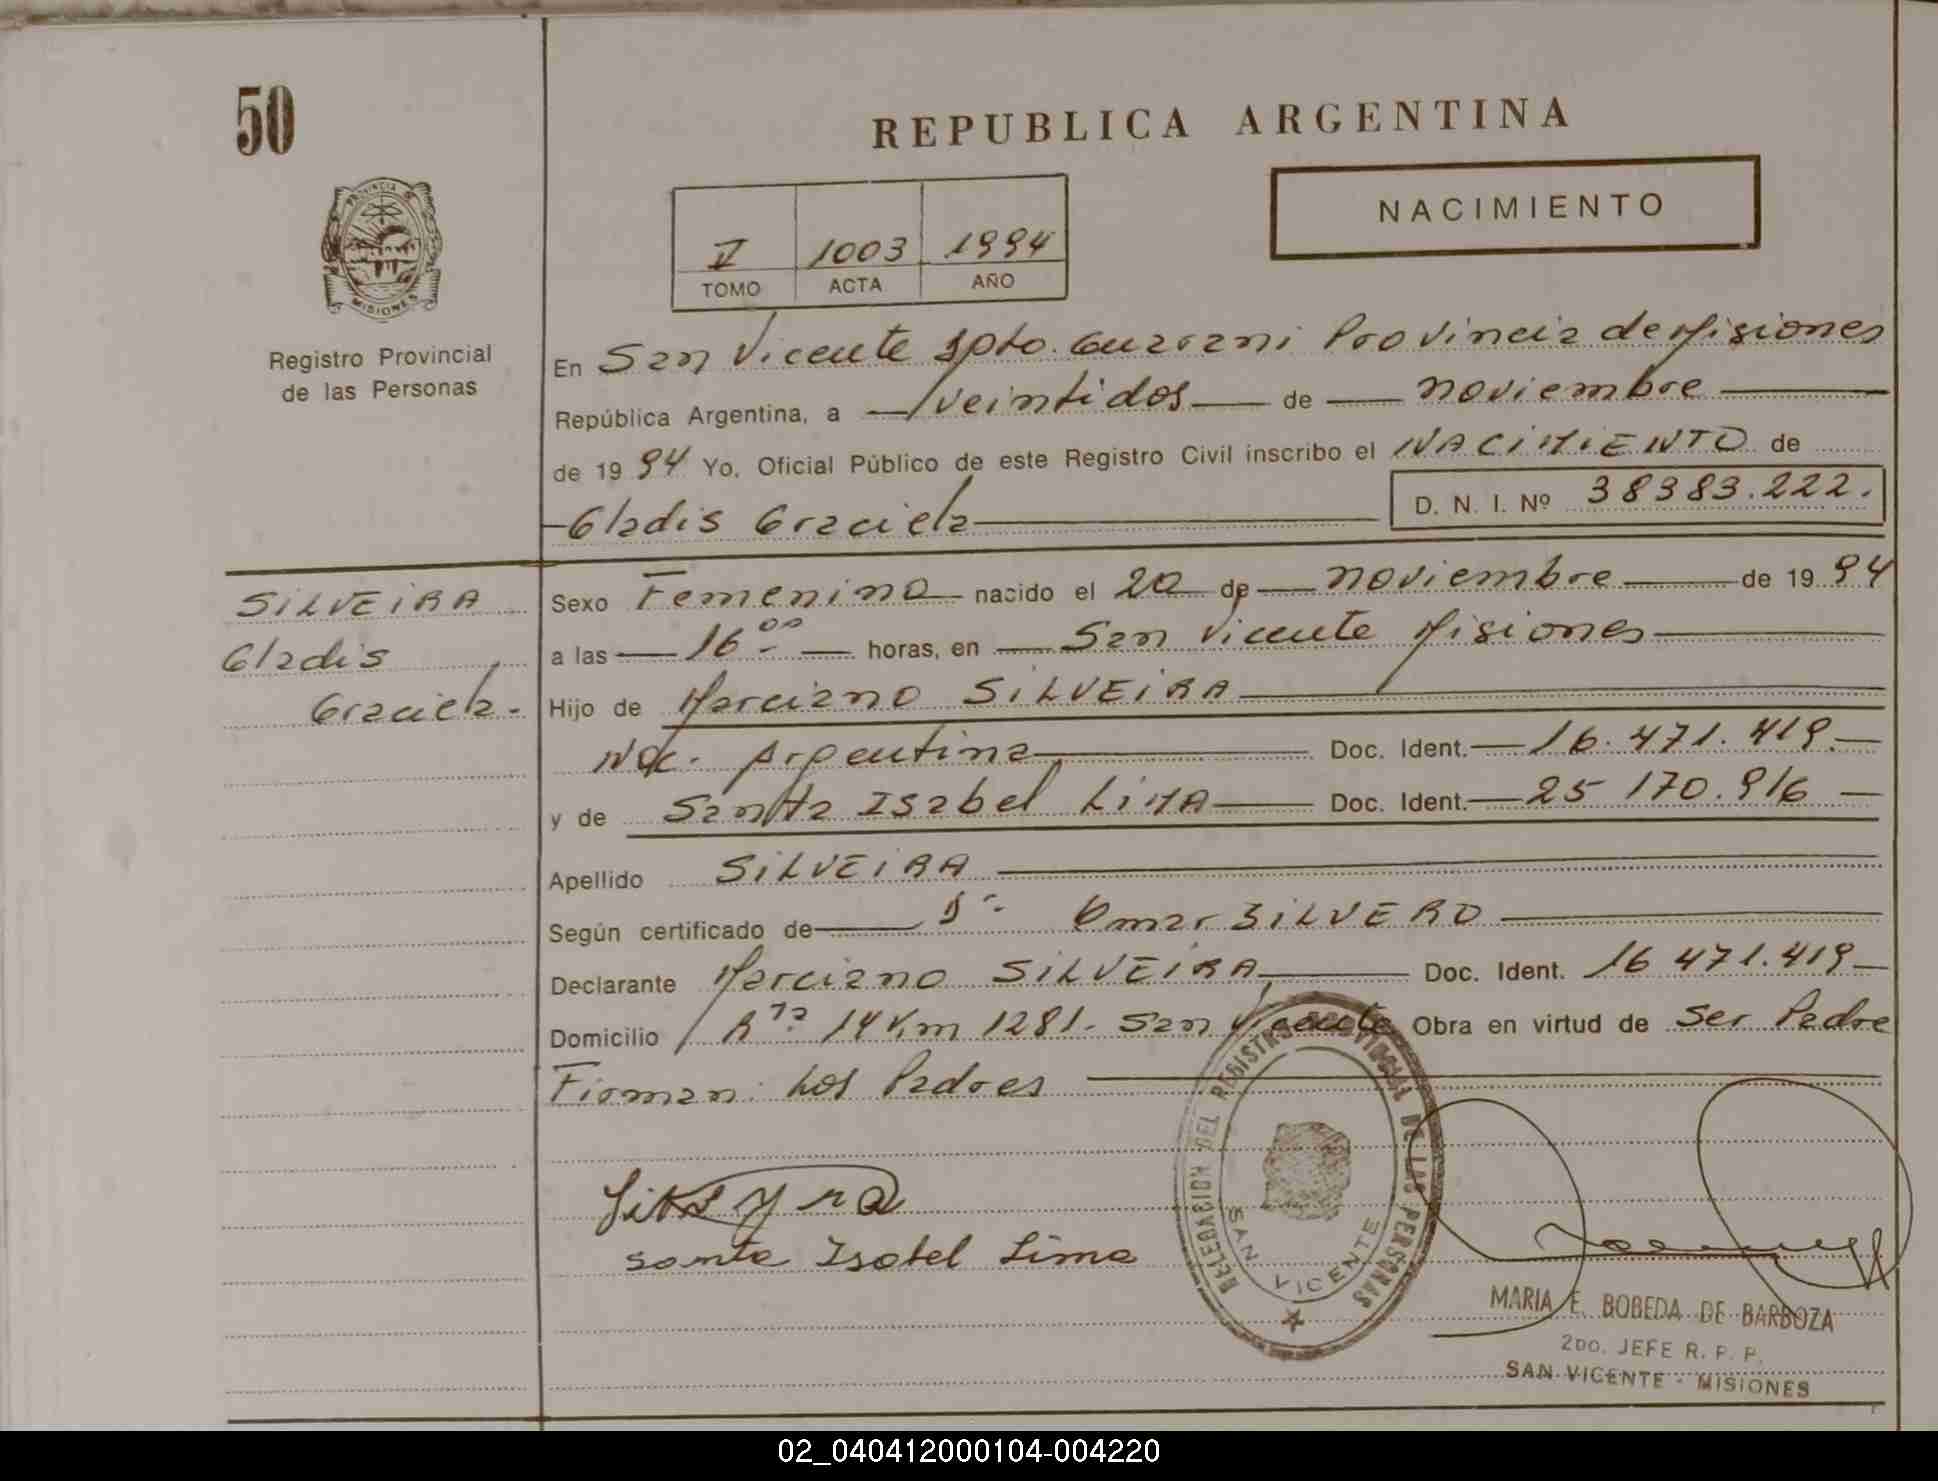 50
REPUBLICA ARGENTINA
NACIMIENTO
V 1003 1994
TOMO ACTA AÑO
PROVINCIA DE
MISIONES
Registro Provincial
de las Personas
En San Vicente Dpto. Guarani Provincia de Misiones
República Argentina, a veintidos de noviembre
de 1994 Yo, Oficial Público de este Registro Civil inscribo el NACIMIENTO de
Gladis Graciela D. N. I. Nº 38383.222.
SILVEIRA
Gladis
Graciela.-
Sexo Femenino nacido el 20 de noviembre de 1994
a las 16.00 horas, en San Vicente Misiones
Hijo de Marciano SILVEIRA
Nac. Argentina Doc. Ident. 16.471.419.
y de Santa Isabel LIMA Doc. Ident. 25 170.916
Apellido SILVEIRA
Según certificado de Dr. Omar SILVERO
Declarante Marciano SILVEIRA Doc. Ident. 16 471.419
Domicilio Rta. 14 Km 1281. San Vicente Obra en virtud de Ser Padre
Firman: Los Padres
Santa Isabel Lima
DELEGACION DEL REGISTRO PROVINCIAL DE LAS PERSONAS
SAN VICENTE
MARIA E. BOBEDA DE BARBOZA
2DO. JEFE R. P. P.
SAN VICENTE - MISIONES
02_040412000104-004220